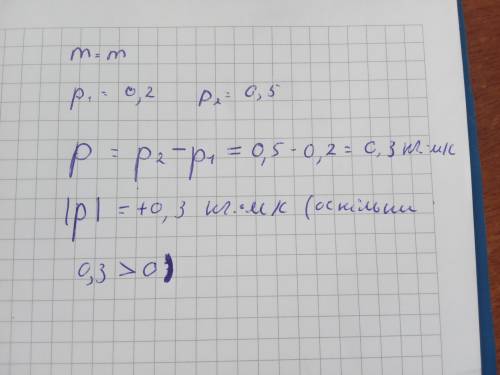 m = m
p₁ = 0,2 p₂ = 0,5
p = p₂ - p₁ = 0,5 - 0,2 = 0,3 кг·мк
|p| = +0,3 кг·мк (оскільки
0,3 > 0)